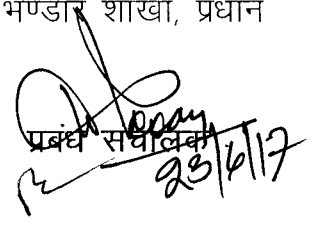 भण्डार शाखा, प्रधान
प्रबंध संचालक
23/6/17